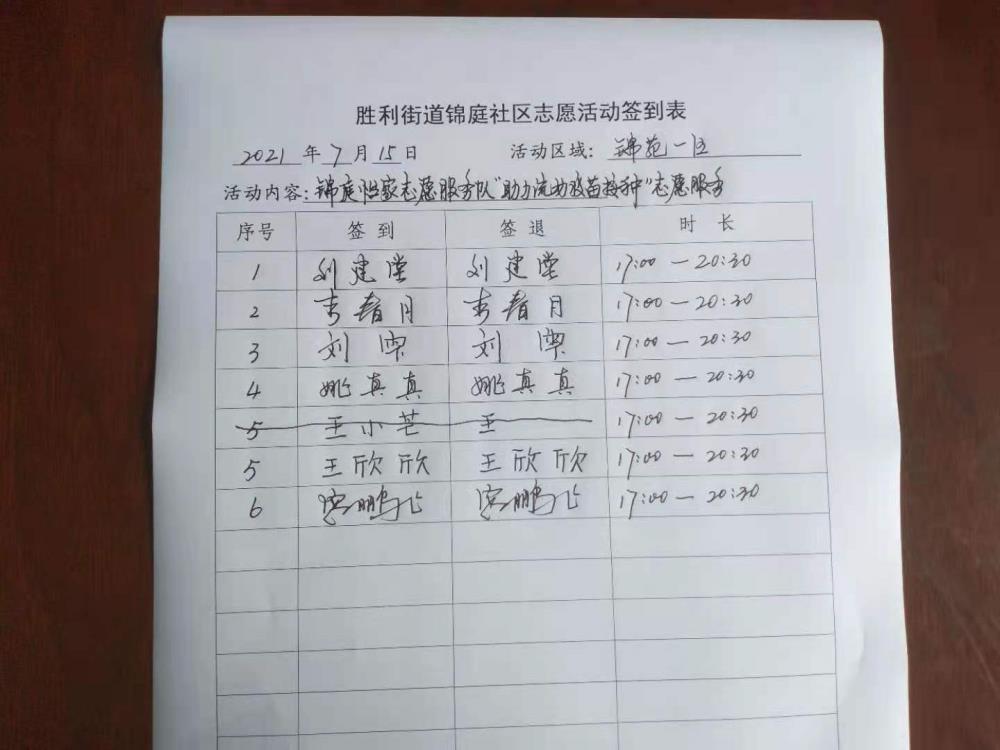 胜利街道锦庭社区志愿活动签到表
2021 年 7 月 15 日 活动区域: 锦苑一区
活动内容: 锦庭怡家志愿服务队"助力流动疫苗接种"志愿服务
序号 签到 签退 时长
1 刘建莹 刘建莹 17:00—20:30
2 李春月 李春月 17:00—20:30
3 刘 刘 17:00—20:30
4 姚真真 姚真真 17:00—20:30
5 王小芒 王 17:00—20:30
5 王欣欣 王欣欣 17:00—20:30
6 鹏 鹏 17:00—20:30